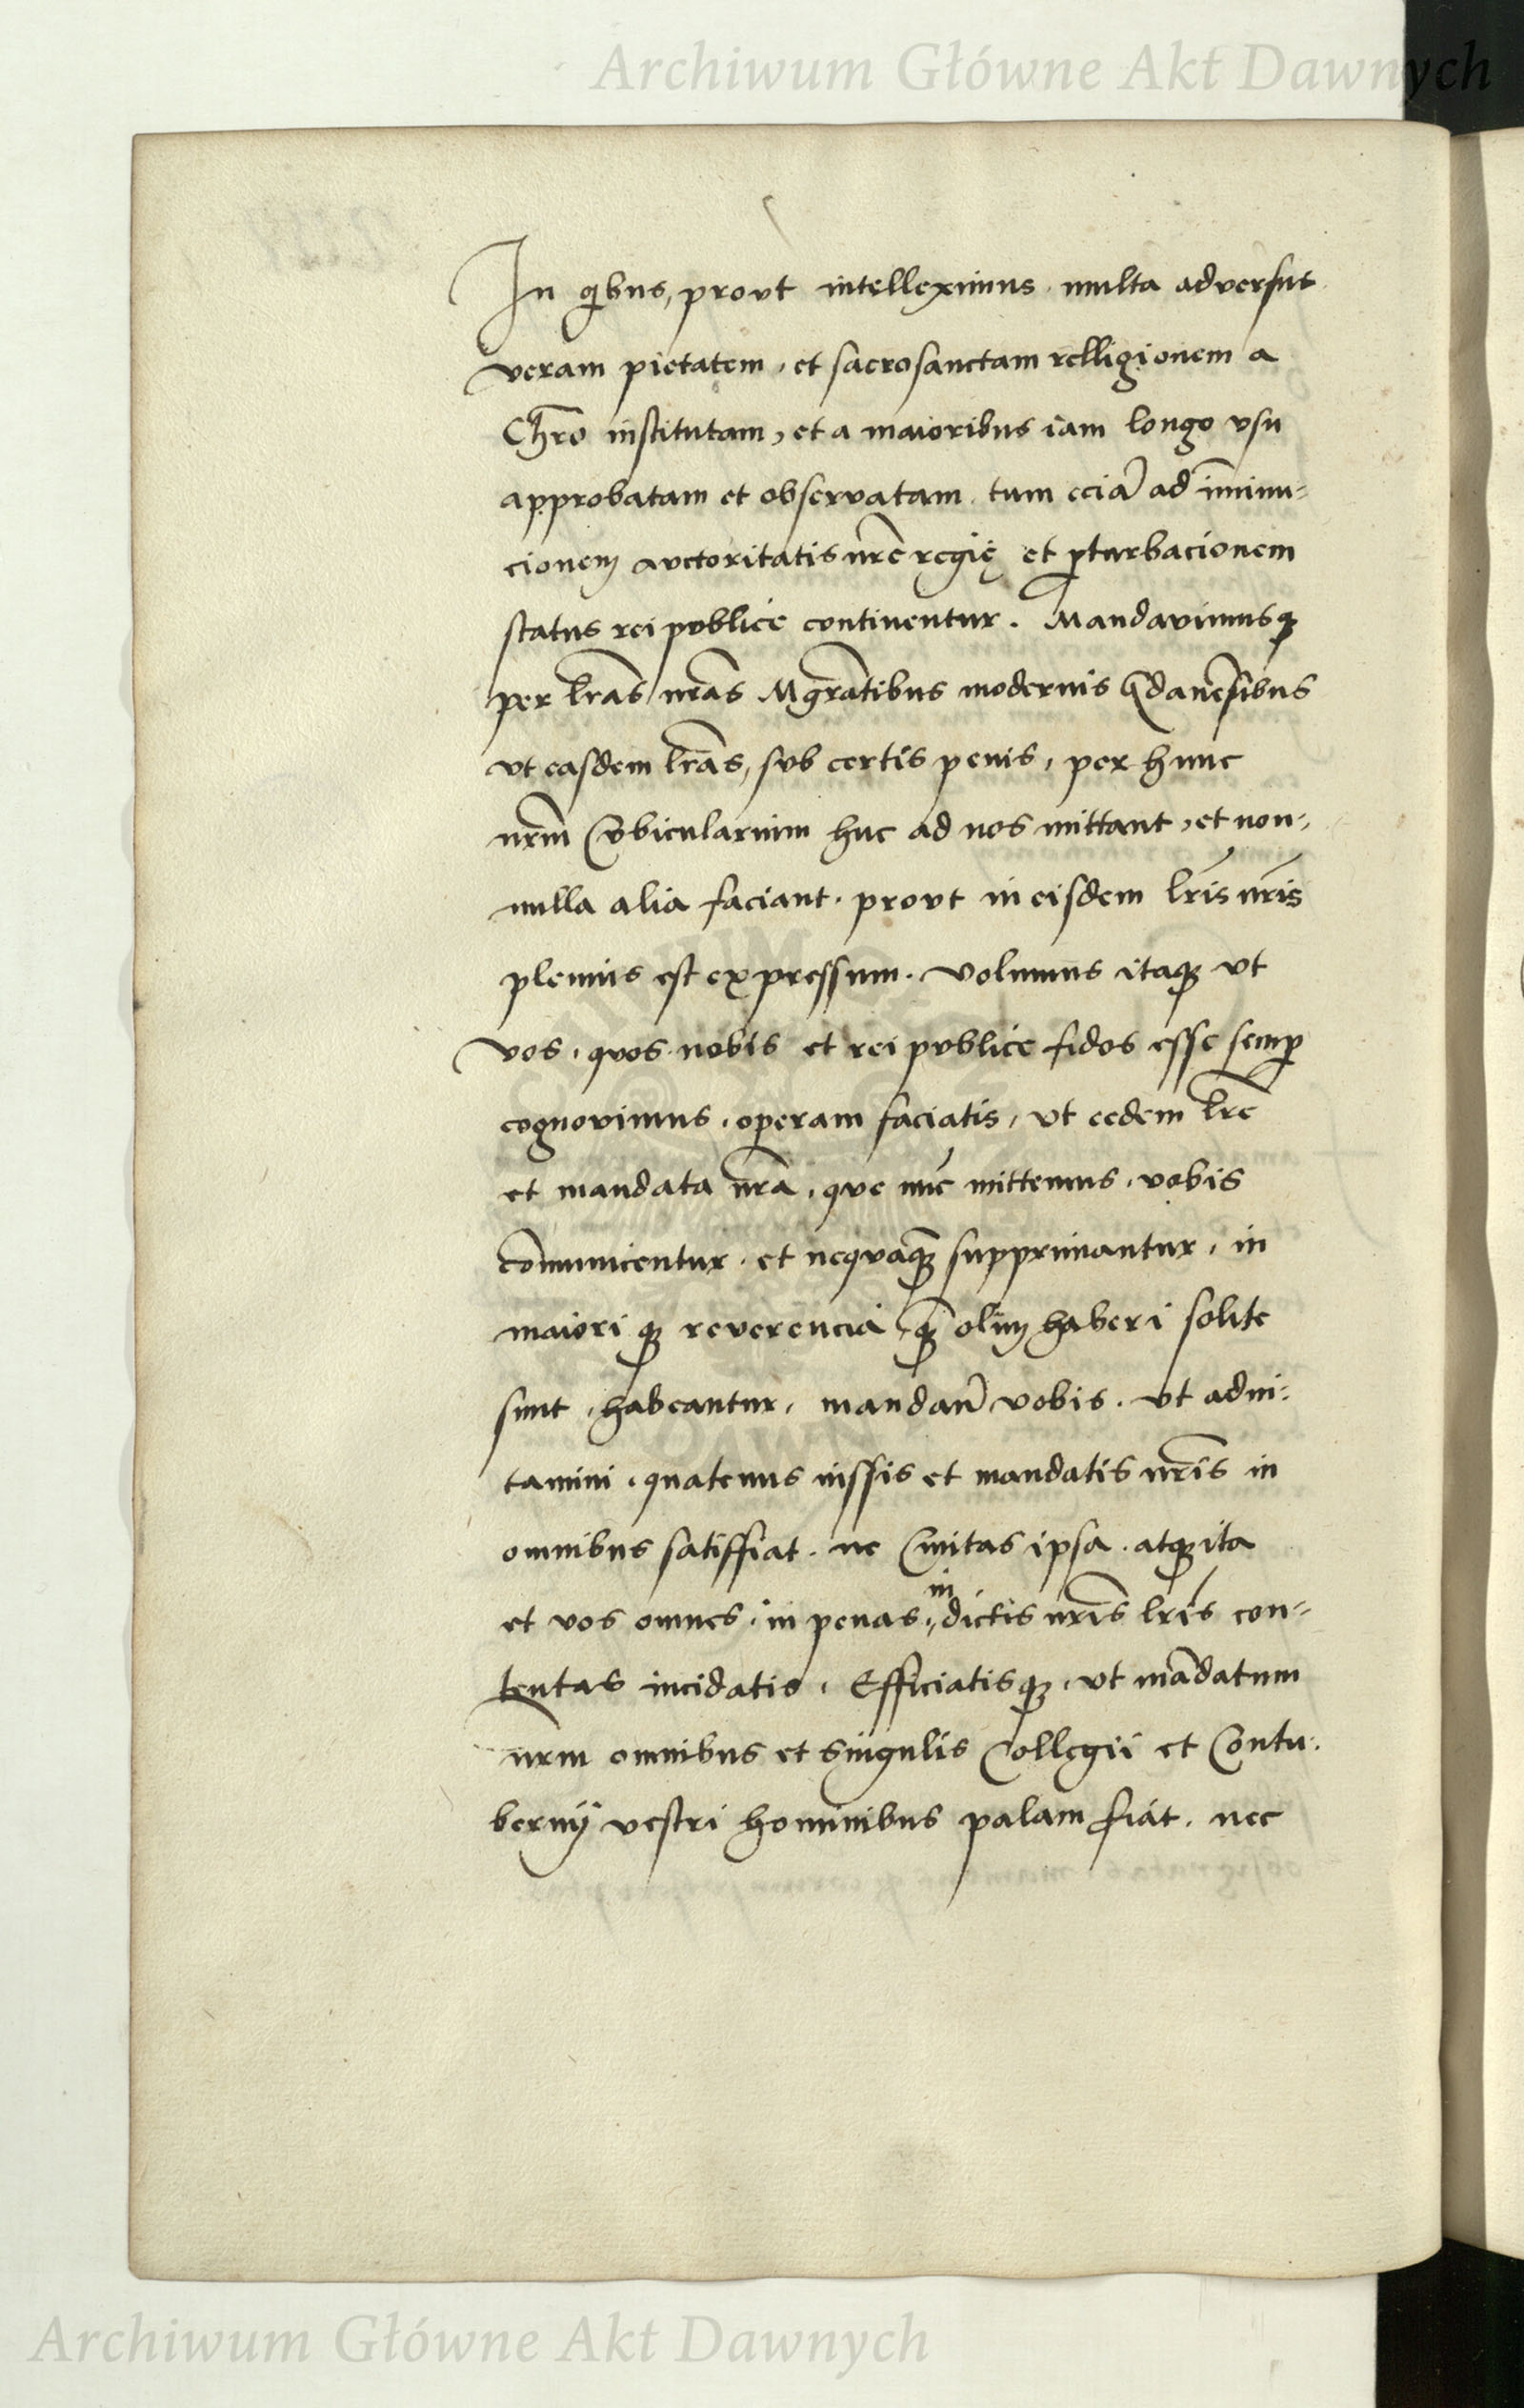 Archiwum Główne Akt Dawnych
In qibus, provt intelleximus. multa adversus
veram pietatem, et sacrosanctam relligionem a
Chr̃o institutam, et a maioribus iam longo vsu
approbatam et observatam. tum eciã ad im̃inu-
cionem avctoritatis nr̃e regię et pturbacionem
status rei pvblice continentur. Mandavimusq
per lr̃as nr̃as Mgr̃atibus modernis Gdanẽsibus
vt easdem lr̃as, svb certis penis, per hunc
nrm̃ Cvbicularium huc ad nos mittant, et non-
nulla alia faciant. provt in eisdem lr̃is nr̃is
plenius est expressum. volumus itaq vt
vos, qvos nobis et rei pvblice fidos esse semp
cognovimus, operam faciatis, vt eedem lr̃e
et mandata nr̃a, qve nũc mittemus, vobis
com̃unicentur. et neqvaq̃ supprimantur, in
maiori q reverencia, q̃ olim haberi solite
sunt, habeantur, mandañ vobis. vt adni-
tamini, quatenus iussis et mandatis nr̃is in
omnibus satisfiat. ne Civitas ipsa. atq ita
et vos omnes, in penas, in dictis nr̃is lr̃is con-
tentas incidatis, Efficiatisq, vt mãdatum
nr̃m omnibus et singulis Collegii et Contu-
bernij vestri hominibus palam fiat. nec
Archiwum Główne Akt Dawnych